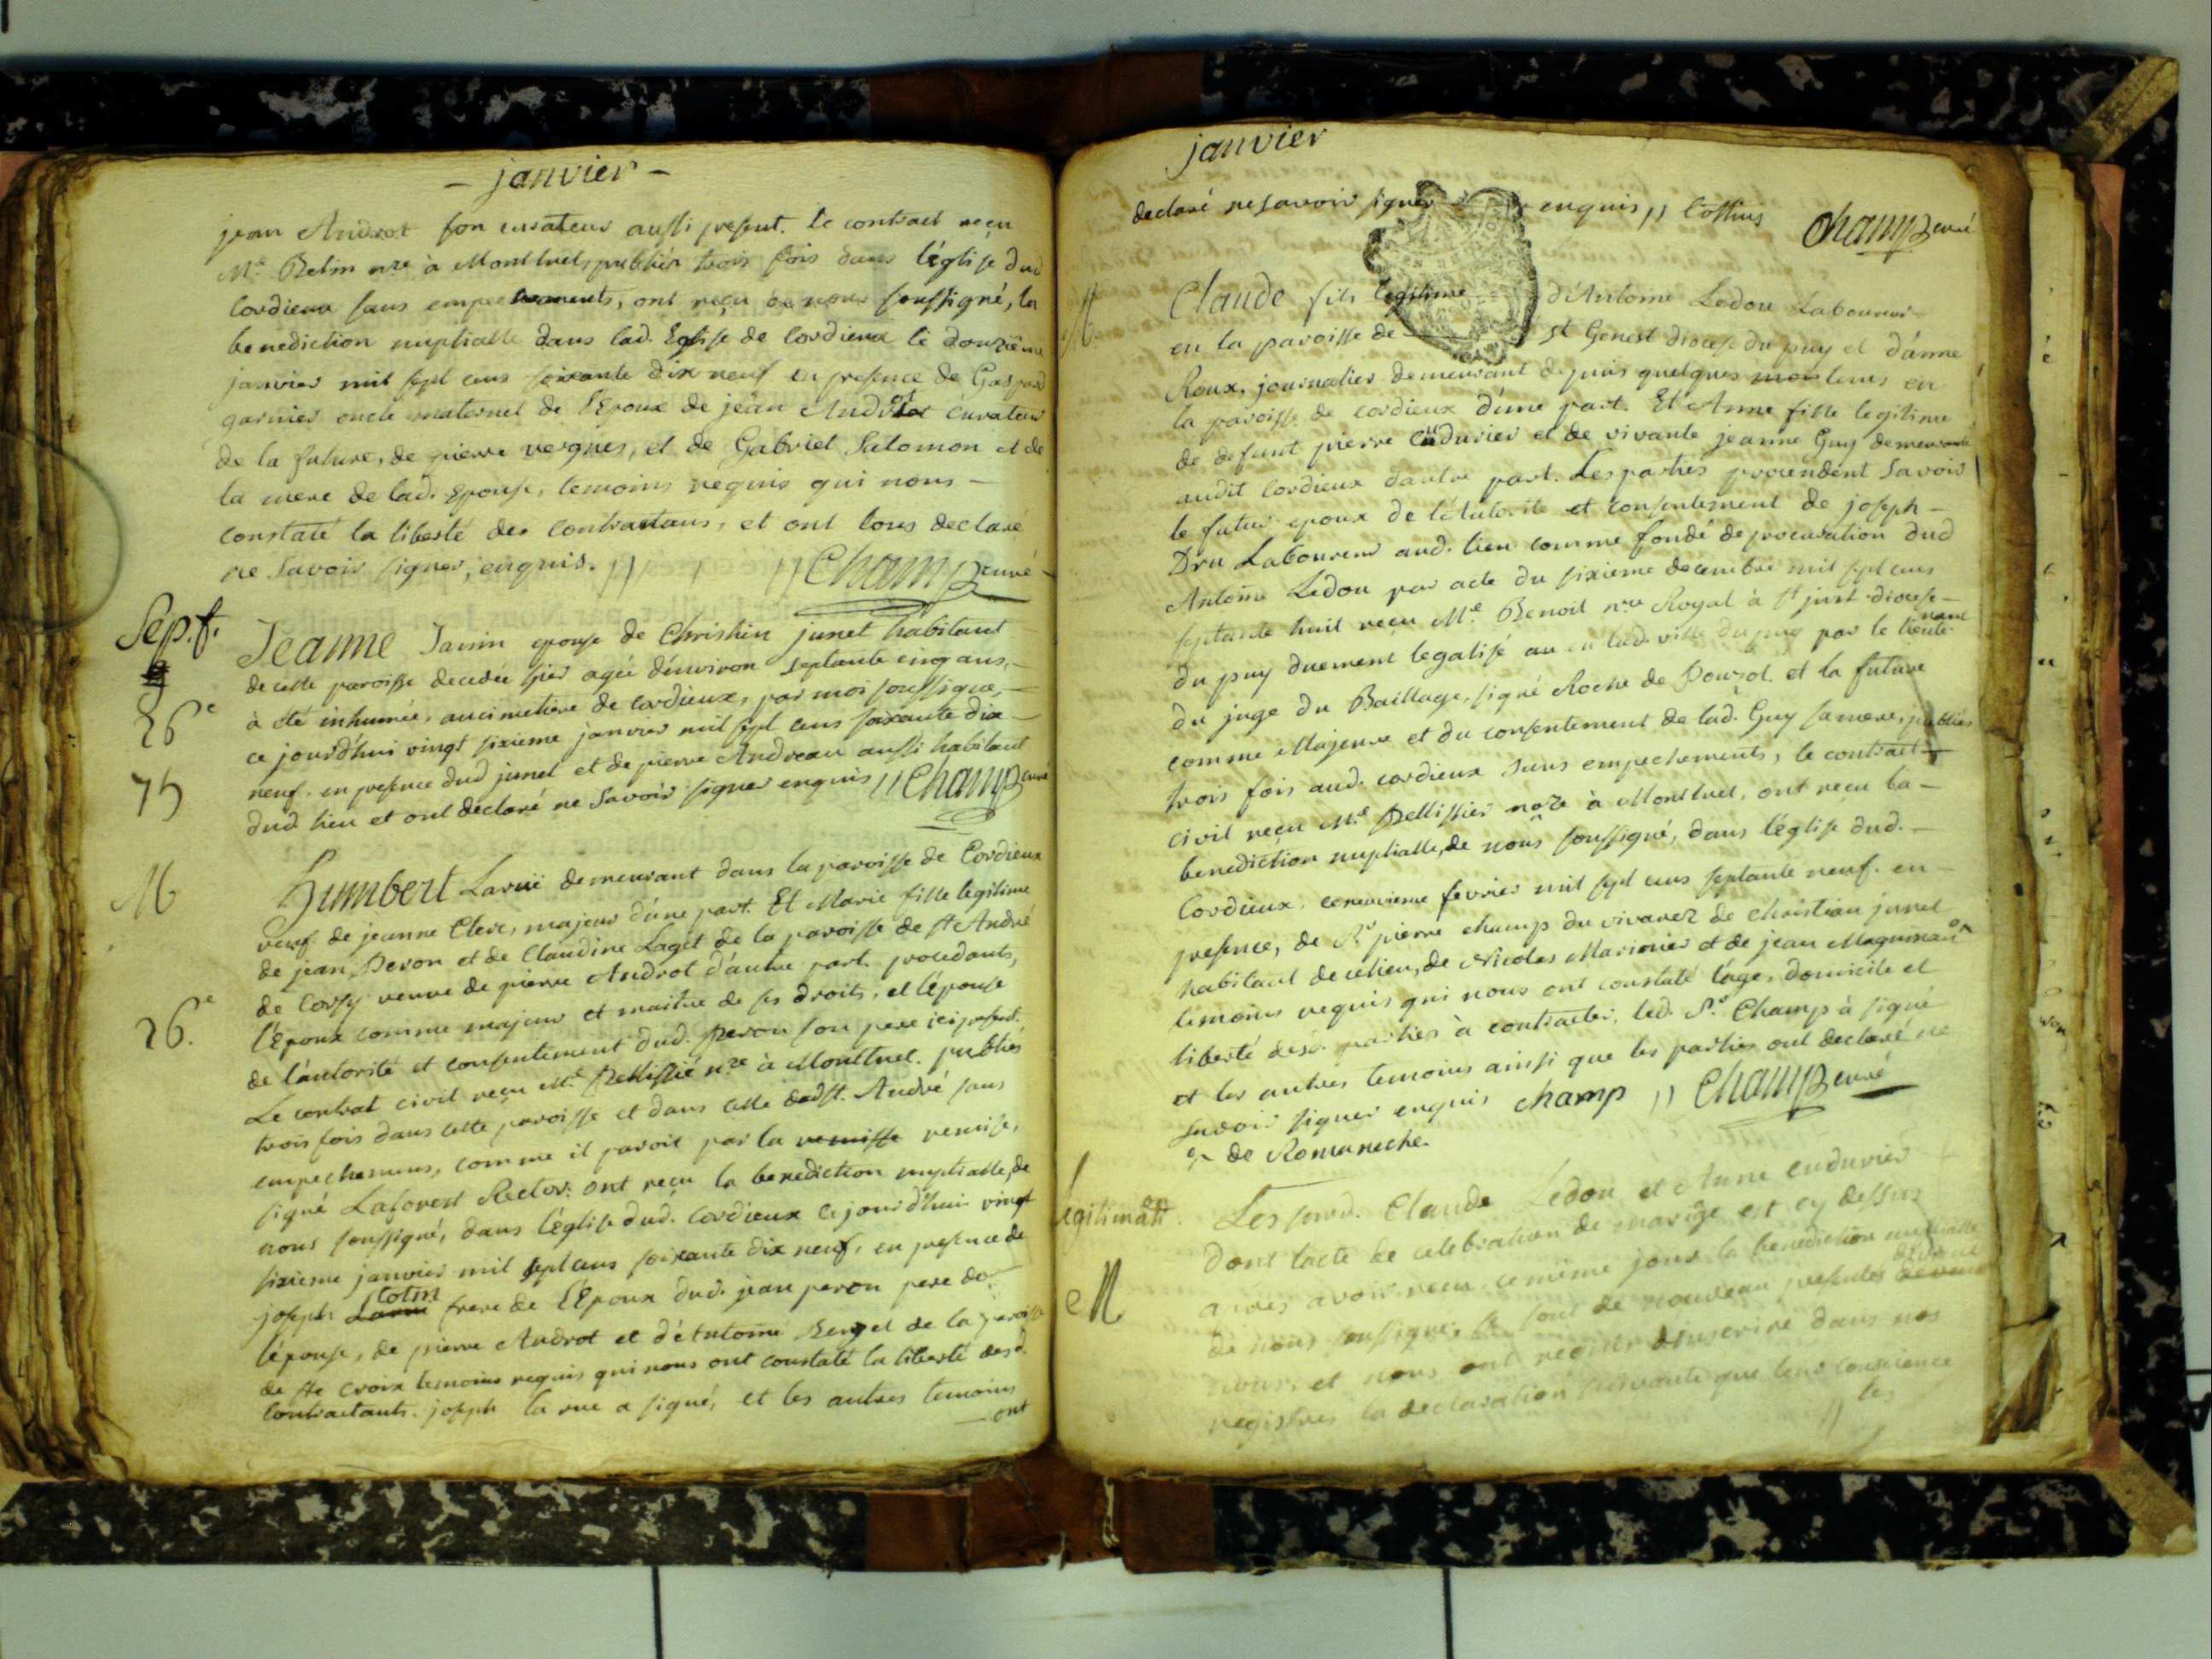 - janvier -
jean Androt son curateur aussi present. le contract reçu
Me. Belin nre à Montluel, publiés trois fois dans l'église dud
Cordieux sans empechements, ont reçu de nous soussigné, la
benediction nuptialle dans lad. Eglise de Cordieux le douzième
janvier mil sept cens soixante dix neuf en presence de Gaspard
garnier oncle maternel de l'Epoux de jean Androt curateur
de la future, de pierre vergnes, et de Gabriel Salomon et de
la mere de lad. Epouse, temoins requis qui nous -
constaté la liberté des contractans, et ont tous declaré
ne savoir signer, enquis. // // Champ curé
Sep.f.
26e
75
Jeanne Janin epouse de Christin junet habitant
de cette paroisse decedée hier agée d'environ septante cinq ans, -
à été inhumée, au cimetiere de cordieux, par moi soussigné, -
ce jourd'hui vingt sixieme janvier mil sept cens soixante dix -
neuf. en presence dud junet et de pierre Andreau aussi habitant
dud lieu et ont declaré ne Savoir signer enquis // Champ curé
M
26.e
Humbert Laruë demeurant dans la paroisse de Cordieux
veuf de jeanne Clerc, majeur d'une part. Et Marie fille legitime
de jean Peron et de Claudine Laget de la paroisse de st André
de Corsy veuve de pierre Androt d'autre part. procedants,
l'Epoux comme majeur et maitre de ses droits, et l'épouse
de l'autorité et consentement dud. peron son pere ici present.
Le contrat civil reçu Me. Pellissié nre à Montluel. publiés
trois fois dans cette paroisse et dans celle dudst. André sans
empechemens, comme il paroit par la remisse remise,
signé Laforest Rector: ont reçu la benediction nuptialle, de
nous soussigné, dans l'église dud. Cordieux ce jourd'hui vingt
sixieme janvier mil sept cens soixante dix neuf, en presence de
joseph Larue Cotin frere de l'Epoux dud. jean peron pere de
l'épouse, de pierre Androt et d'Antoine Berget de la paroisse
de Ste Croix temoins requis qui nous ont constaté la liberté desd.
Contractants. joseph la rue a signé, et les autres temoins
- ont
janvier
declaré ne savoir signer enquis // Cottin Champ curé
M.
Claude fils legitime d'Antoine Ledou Laboureur
en la paroisse de st Genest diocese du puy et d'anne
Roux, journalier demeurant depuis quelques en
la paroisse de cordieux d'une part. Et Anne fille legitime
de defunt pierre Cuduvier et de vivante jeanne Guy demeurante
audit Cordieux d'autre part. Les parties procendent Savoir
le futur epoux de l'Autorité et consentement de joseph -
Dru Laboureur aud. lieu comme fondé de procuration dud
Antoine Ledou par acte du sixieme decembre mil sept cens
septante huit reçu Me. Benoit nre Royal à st just diocese -
du puy duement legalisé au en lad. ville du puy par le lieutenant
du juge du Baillage, signé Roche de Pouzol. et la future
comme Majeure et du consentement de lad. Guy sa mere, publiés
trois fois aud. cordieux sans empechements, le contract
civil reçu Me. Pellissier nore à Montluel, ont reçu la -
benediction nuptialle, de nous soussigné, dans l'église dud. -
Cordieux. ce neuvieme fevrier mil sept cens septante neuf. en -
presence, de Sr pierre champ du vivarez de Christian junet
habitant de ce lieu, de Nicolas Marinier et de jean Magninau
temoins requis qui nous ont constaté l'age, domicile et
liberté desd. parties à contracter, led. Sr. Champ à signé
et les autres temoins ainsi que les parties ont declaré ne
savoir signer enquis champ // Champ curé
de Romaneche.
Legitimāon.
M
Les susd. Claude Ledou et Anne cuduvier
dont l'acte de celebration de mariage est cy dessus
après avoir reçu ce même jour la benediction nuptialle
de nous soussigné, se sont de nouveau presentés devant
nous, et nous ont requis d'inscrire dans nos
registres la declaration suivante que leur conscience
// les